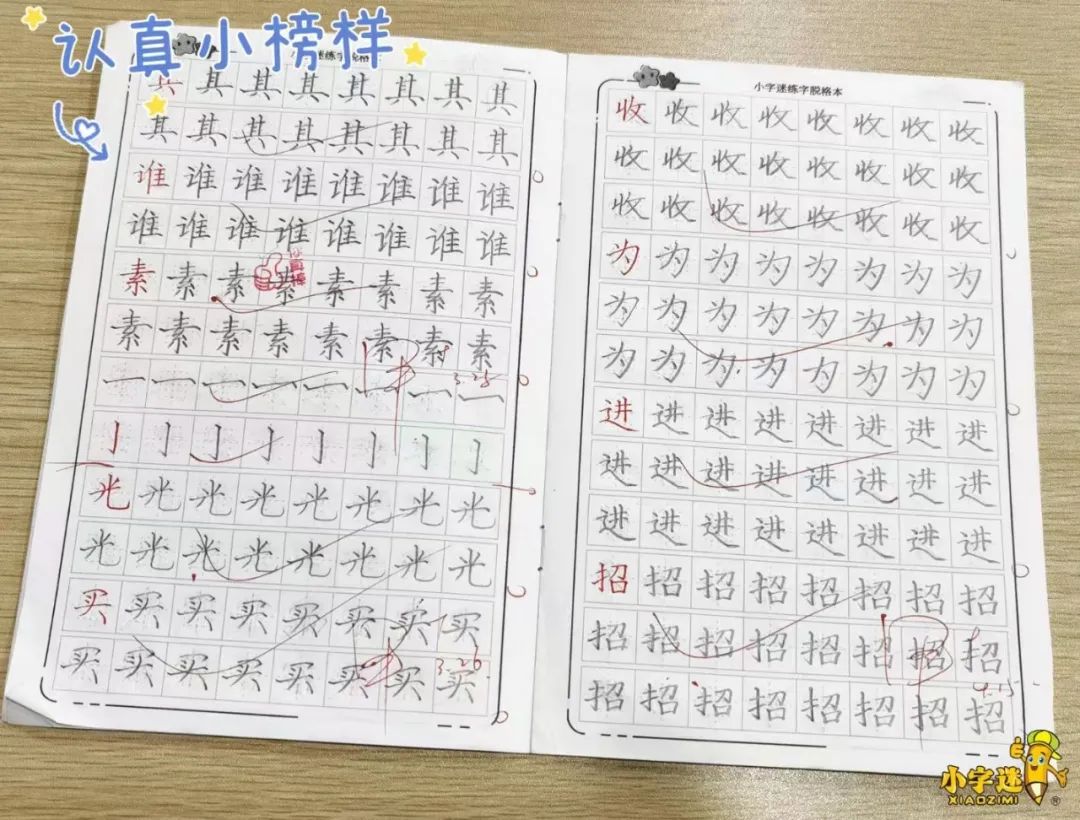 认真小榜样
迷练字脱格
其其其其其其其其
其其其其其其其其
谁谁谁谁谁谁谁谁
谁谁谁谁谁谁谁谁
素素素素素素素素
你真棒
素素素素素素素素
一一一一一一一一
3.25
亅亅亅亅亅亅亅亅
光光光光光光光光
光光光光光光光光
买买买买买买买买
买买买买买买买买
3.26
小字迷练字脱格本
收收收收收收收收
收收收收收收收收
收收收收收收收收
为为为为为为为为
为为为为为为为为
为为为为为为为为
进进进进进进进进
进进进进进进进进
进进进进进进进进
招招招招招招招招
招招招招招招招招
招招招招招招招招
4.15
小字迷
XIAOZIMI